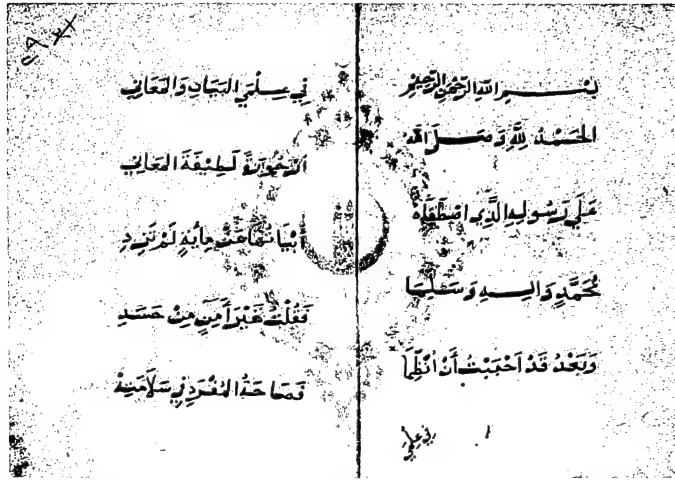 بِسْــمِ اللهِ الرَّحْمٰنِ الرَّحِيْمِ
الحَمْدُ لِلّٰهِ وَصَلَّى اللهُ
عَلَى رَسُولِهِ الَّذِي اصْطَفَاهُ
مُحَمَّدٍ وَالِــهِ وَسَلَّمَا
وَبَعْدُ قَدْ اَحْبَبْتُ أَنْ اَنْظِمَا
في علمي
فِي عِلْمَيِ البَيَانِ وَالمَعَانِي
اُرْجُوزَةً لَطِيْفَةَ المَعَانِي
اَبْيَاتُهَا عَنْ مِائَةٍ لَمْ تَزِدِ
فَقُلْتُ غَيْرَ أَمِنٍ مِنْ حَسَدِ
فَصَاحَةُ المُفْرَدِ فِي سَلَامَتِهْ